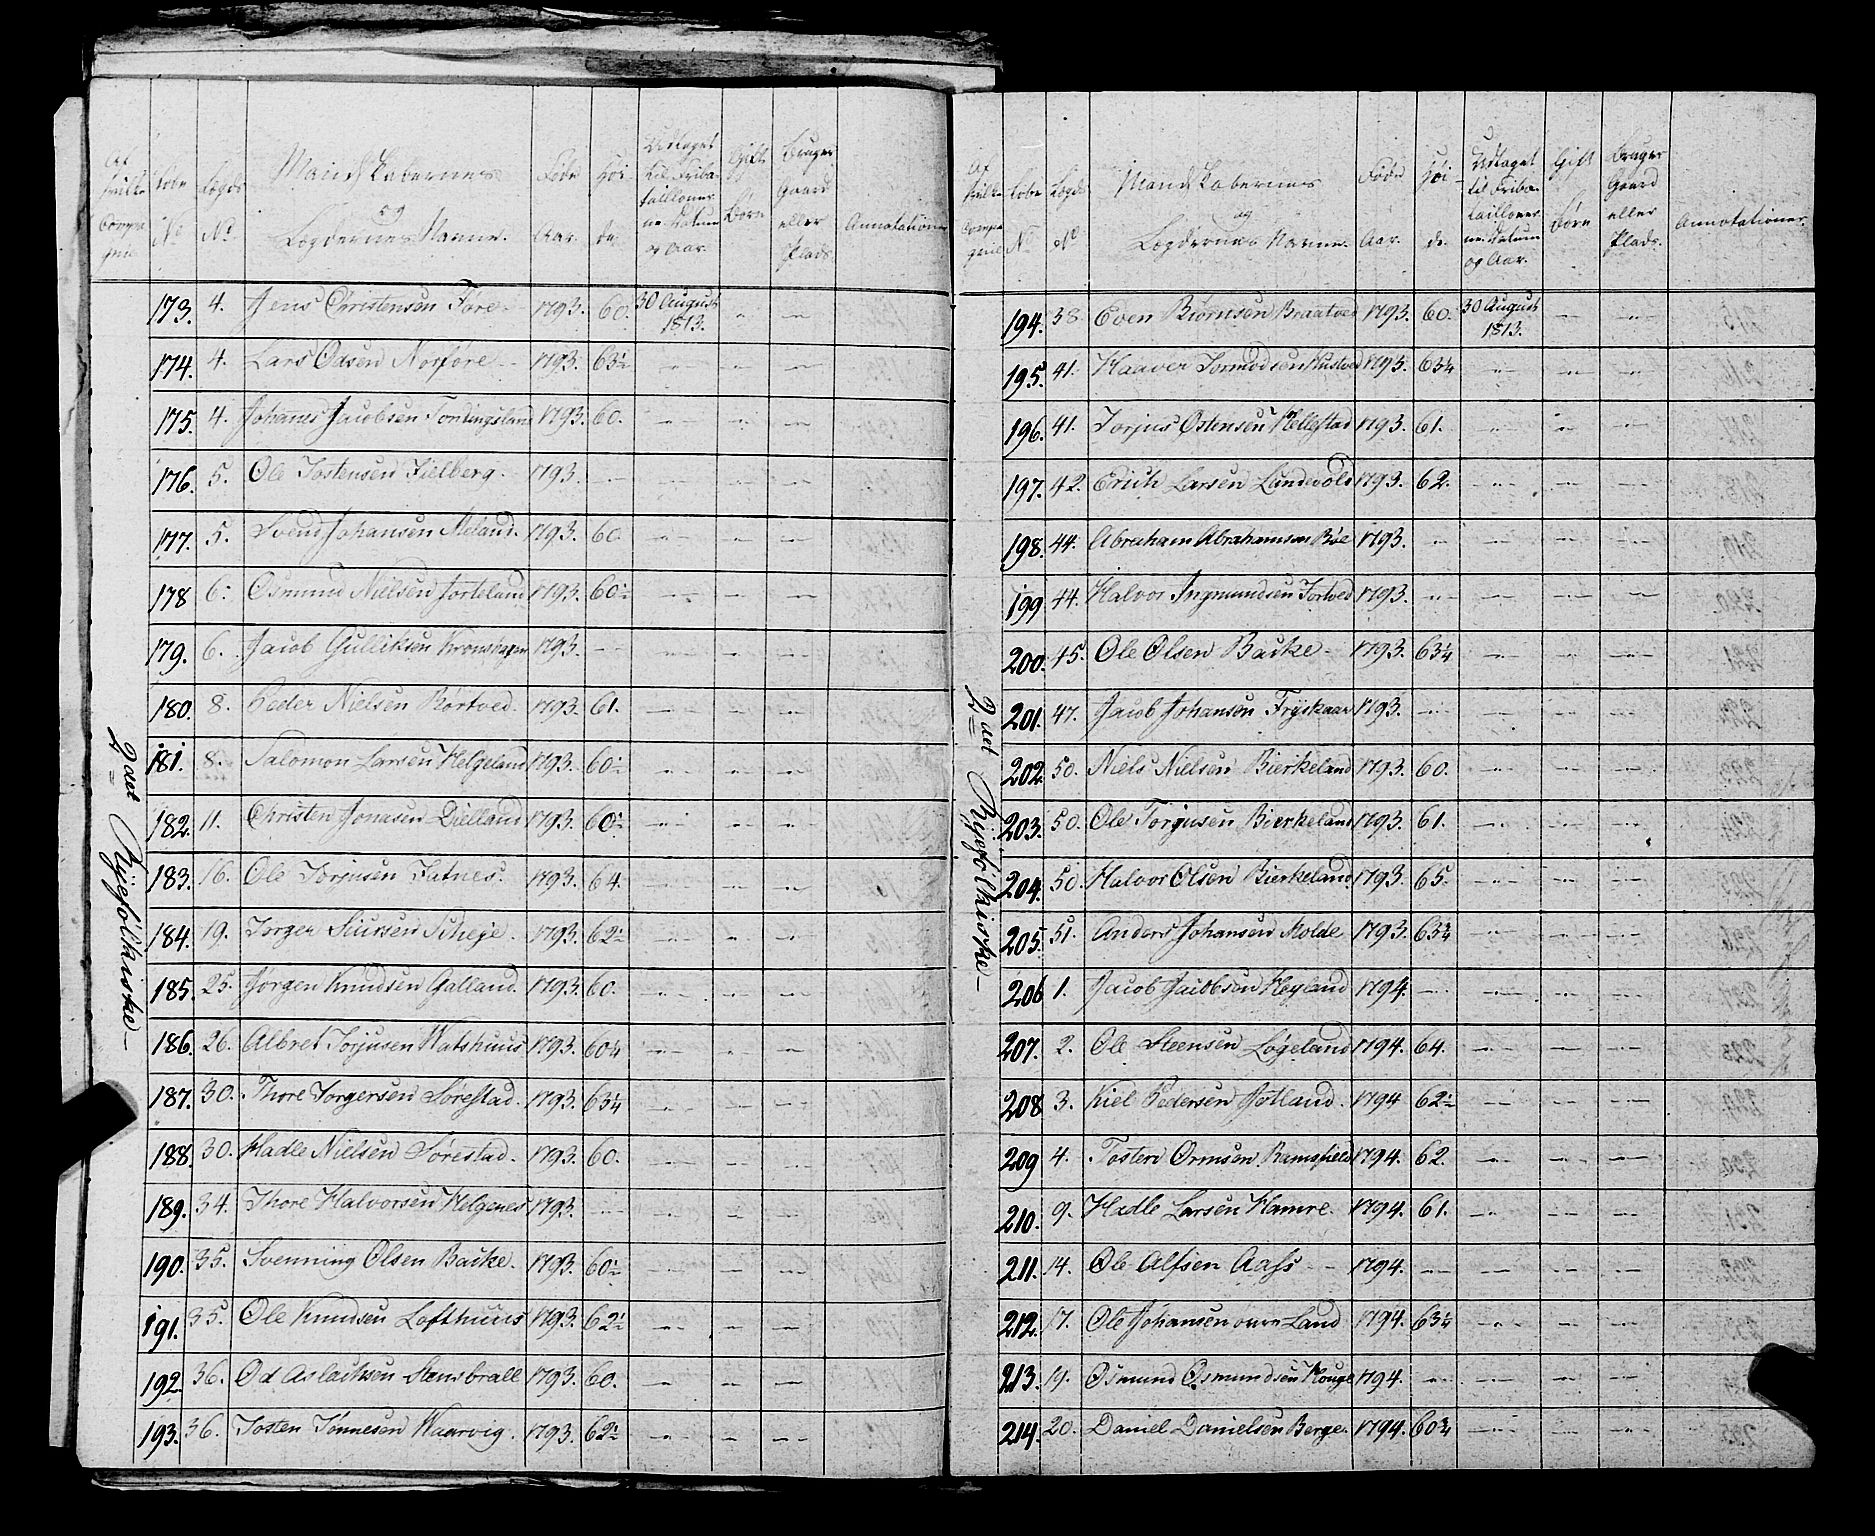 Af hvilke Compagnie | Løbe No | Lægds No | Mandskabernes og Lægdernes Navne. | Føde Aar. | Høide. | Udtaget til Fribataillonerne Datum og Aar. | Gift Børn | Bruger Gaard eller Plads. | Annotationer
2det Ryefölkiske
173. 4. Jens Christensen Føre 1793. 60. 30 August 1813. " "
174. 4. Lars Odsen Norføre 1793. 63½ " " "
175. 4. Johanes Jacobsen Tondingsland 1793. 60. " " "
176. 5. Ole Tostensen Fielberg. 1793. " " " "
177. 5. Svend Johansen Meland. 1793. 60. " " "
178 6. Osmund Nielsen Jorteland 1793. 60½ " " "
179. 6. Jacob Gulliksen Kronshagen 1793. " " " "
180. 8. Peder Nielsen Rørtved. 1793. 61. " " "
181. 8. Salomon Larsen Helgeland 1793. 60½ " " "
182. 11. Christen Jonasen Qielland 1793. 60½ " " "
183. 16. Ole Torjusen Fatnes. 1793. 64. " " "
184. 19. Torger Siursen Scheje. 1793. 62½ " " "
185. 25. Jørgen Knudsen Galland. 1793. 60. " " "
186. 26. Albret Torjusen Watshuus 1793. 60¼ " " "
187. 30. Thore Torgersen Sørestad. 1793. 63¼ " " "
188. 30. Hadle Nielsen Sørestad. 1793. 60. " " "
189. 34. Thore Halvorsen Helgenes 1793. " " " "
190. 35. Svenning Olsen Backe. 1793. 60½ " " "
191. 35. Ole Knudsen Lofthuus 1793. 62½ " " "
192. 36. Od Aslachsen Stensbrall 1793. 60. " " "
193. 36. Tosten Tønnesen Waarvig. 1793. 62½ " " "
Af hvilke Compagnie | Løbe No | Lægds No | Mandskabernes og Lægdernes Navne. | Føde Aar. | Høide. | Udtaget til Fribataillonerne Datum og Aar. | Gift Børn | Bruger Gaard eller Plads. | Annotationer.
2det Ryefölkiske
194. 38. Even Biørnsen Braatved 1793. 60. 30 August 1813. " "
195. 41. Haaver Tormodsen Hustved 1793. 63¼ " " "
196. 41. Torjus Østensen Hellestad 1793. 61. " " "
197. 42. Erich Larsen Lundevold 1793. 62. " " "
198. 44. Abraham Abrahamsen Bøe 1793. " " " "
199 44. Halvor Ingmundsen Tortved 1793. " " " "
200. 45. Ole Olsen Backe. 1793. 63¼ " " "
201. 47. Jacob Johansen Fryskaar 1793. " " " "
202 50. Niels Nielsen Bierkeland 1793. 60. " " "
203. 50. Ole Torgusen Bierkeland 1793. 61. " " "
204. 50. Halvor Olsen Bierkeland 1793. 65. " " "
205. 51. Anders Johansen Molde 1793. 63¾ " " "
206 1. Jacob Jacobsen Heyland 1794. " " " "
207. 2. Ole Steensen Løgeland 1794. 64. " " "
208 3. Kiel Pedersen Jøtland. 1794 62½ " " "
209 4. Tosten Ormsen Ramsfield 1794. 62. " " "
210. 9. Hadle Larsen Hamre. 1794. 61. " " "
211. 14. Ole Alfsen Aass 1794. " " " "
212. 17. Ole Johansen øvre Land 1794. 63¼ " " "
213. 19. Osmund Osmundsen Kouge 1794. " " " "
214. 20. Daniel Danielsen Berge. 1794. 60¾ " " "